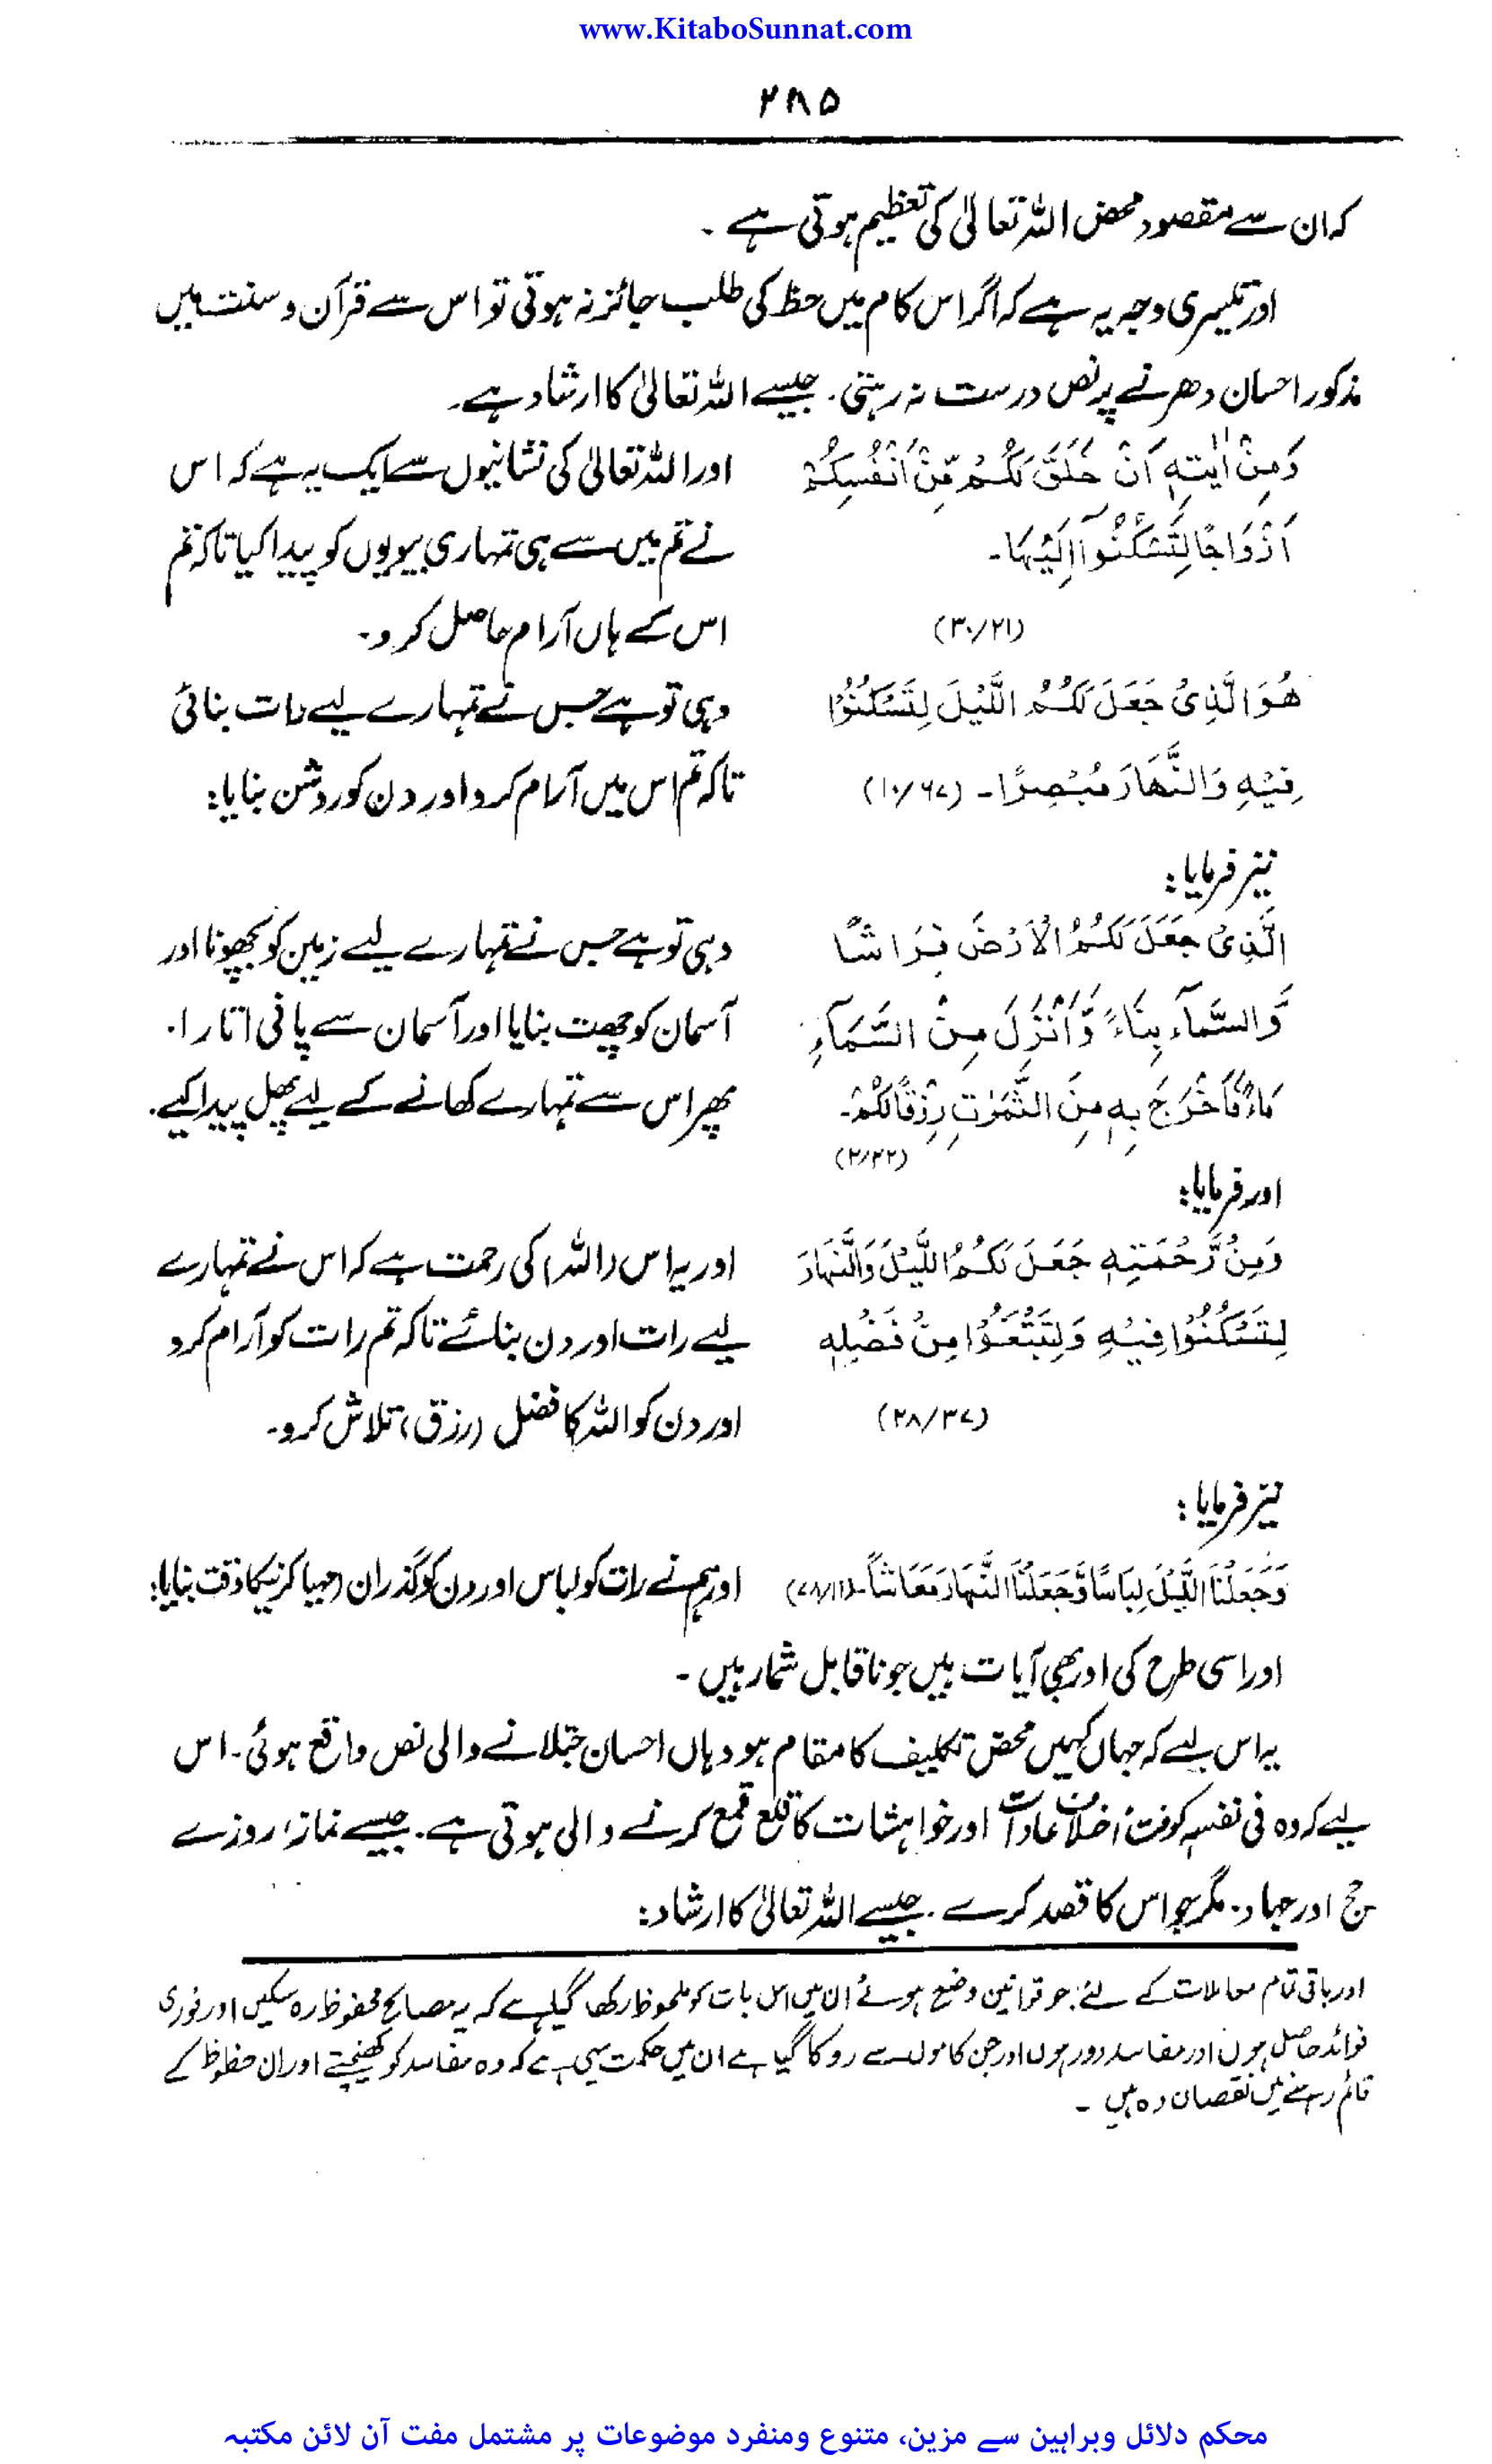 www.KitaboSunnat.com
۲۸۵
کہ ان سے مقصود محض اللہ تعالیٰ کی تعظیم ہوتی ہے ۔
اور تیسری وجہ یہ ہے کہ اگر اس کام میں حظ کی طلب جائز نہ ہوتی تو اس سے قرآن و سنت میں
مذکور احسان دھرنے پر نص درست نہ رہتی ۔ جیسے اللہ تعالیٰ کا ارشاد ہے۔
وَمِنْ اٰيٰتِهٖ اَنْ خَلَقَ لَكُمْ مِّنْ اَنْفُسِكُمْ
اَزْوَاجًا لِّتَسْكُنُوْٓا اِلَيْهَا۔
(۳۰/۲۱)
اور اللہ تعالیٰ کی نشانیوں سے ایک یہ ہے کہ اس
نے تم میں سے ہی تمہاری بیویوں کو پیدا کیا تاکہ تم
اس کے ہاں آرام حاصل کرو۔
هُوَ الَّذِىْ جَعَلَ لَكُمُ الَّيْلَ لِتَسْكُنُوْا
فِيْهِ وَالنَّهَارَ مُبْصِرًا۔ (۱۰/۶۷)
وہی تو ہے جس نے تمہارے لیے رات بنائی
تاکہ تم اس میں آرام کرو اور دن کو روشن بنایا:
نیز فرمایا:
الَّذِىْ جَعَلَ لَكُمُ الْاَرْضَ فِرَاشًا
وَّالسَّمَآءَ بِنَاءً وَّاَنْزَلَ مِنَ السَّمَآءِ
مَاءً فَاَخْرَجَ بِهٖ مِنَ الثَّمَرٰتِ رِزْقًا لَّكُمْ۔
(۲/۲۲)
وہی تو ہے جس نے تمہارے لیے زمین کو بچھونا اور
آسمان کو چھت بنایا اور آسمان سے پانی اتارا۔
پھر اس سے تمہارے کھانے کے لیے پھل پیدا کیے۔
اور فرمایا:
وَمِنْ رَّحْمَتِهٖ جَعَلَ لَكُمُ الَّيْلَ وَالنَّهَارَ
لِتَسْكُنُوْا فِيْهِ وَلِتَبْتَغُوْا مِنْ فَضْلِهٖ
(۲۸/۳۷)
اور یہ اس (اللہ) کی رحمت ہے کہ اس نے تمہارے
لیے رات اور دن بنائے تاکہ تم رات کو آرام کرو
اور دن کو اللہ کا فضل (رزق) تلاش کرو۔
نیز فرمایا:
وَجَعَلْنَا الَّيْلَ لِبَاسًا وَّجَعَلْنَا النَّهَارَ مَعَاشًا۔ (۷۸/۱۱)
اور ہم نے رات کو لباس اور دن کو گذران (مہیا کرنے کا وقت بنایا:
اور اسی طرح کی اور بھی آیات ہیں جو ناقابل شمار ہیں ۔
یہ اس لیے کہ جہاں کہیں محض تکلیف کا مقام ہو وہاں احسان جتلانے والی نص واقع ہوئی۔ اس
لیے کہ وہ فی نفسہٖ کوفت، خلاف عادات اور خواہشات کا قلع قمع کرنے والی ہوتی ہے۔ جیسے نماز، روزے
حج اور جہاد۔ مگر جو اس کا قصد کرے ۔ جیسے اللہ تعالیٰ کا ارشاد:
اور باقی تمام معاملات کے لئے جو قوانین وضع ہوئے ان میں اس بات کو ملحوظ رکھا گیا ہے کہ یہ مصالح محفوظ رہ سکیں اور فوری
فوائد حاصل ہوں اور مفاسد دور ہوں اور جن کاموں سے روکا گیا ہے ان میں حکمت یہی ہے کہ وہ مفاسد کو کھینچتے اور ان حظوظ کے
قائم رہنے میں نقصان دہ ہیں ۔
محکم دلائل وبراہین سے مزین، متنوع ومنفرد موضوعات پر مشتمل مفت آن لائن مکتبہ